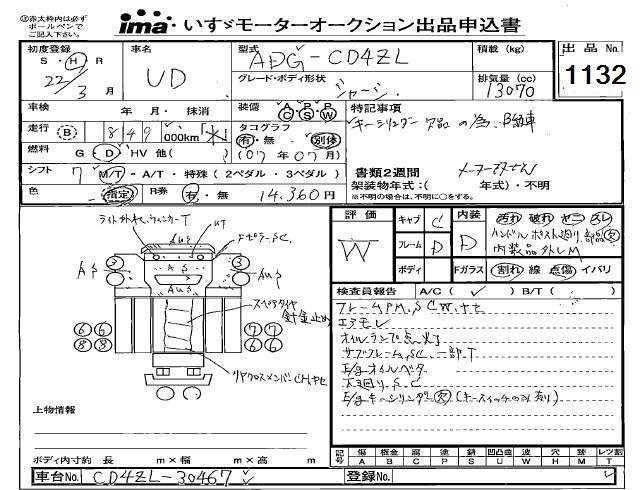 ※赤太枠内は必ず
ボールペンで
ご記入下さい。
ima いすゞモーターオークション出品申込書
初度登録 車名 型式 積載 (kg) 出品No.
S・H・R UD ADG-CD4ZL
22/3月 グレード・ボディ形状 シャーシ 排気量 (cc) 13070 1132
車検 年 月・抹消 装備 A/C P/S P/W 特記事項
キーシリンダー欠品の為、B鍵車
走行 B 849 000km
タコグラフ 有・無 別体
燃料 G・D・HV 他( ) (07年07月)
書類2週間
シフト 7 M/T・A/T・特殊(2ペダル・3ペダル)
架装物年式:( 年式)・不明
※不明の場合は、不明に○をする。
色 指定 R券 有・無 14,360円
評価 W キャブ C 内装 D 汚れ 破れ ヤニ スレ
フレーム D ハンドルポスト廻り部品欠
内装品外しM
ボディ Fガラス 割れ 線 点傷 イバリ
検査員報告 A/C( ✓ ) B/T( )
フレームPM、SCW、ヤセ
エアモレ
オイルランプ点灯
サブフレームSC、一部T
E/gオイルベタ
下廻り、S、C
E/gキーシリンダー欠(キースイッチのみ有り)
ライト外ヤセ、ウィンカーT
UT
AUS
FピラーS.C.
AS
AUS
スペアタイヤ
針金止め
リヤクロスメンバーCHヤセ
上物情報
ボディ内寸約 長 m×幅 m×高 m
記号 傷 A 板金 B 腐 C 塗 P 錆 S 凹凸曲 U 波 W 穴 H モケ M 球 レツ割 T
車台No. CD4ZL-30467 登録No.